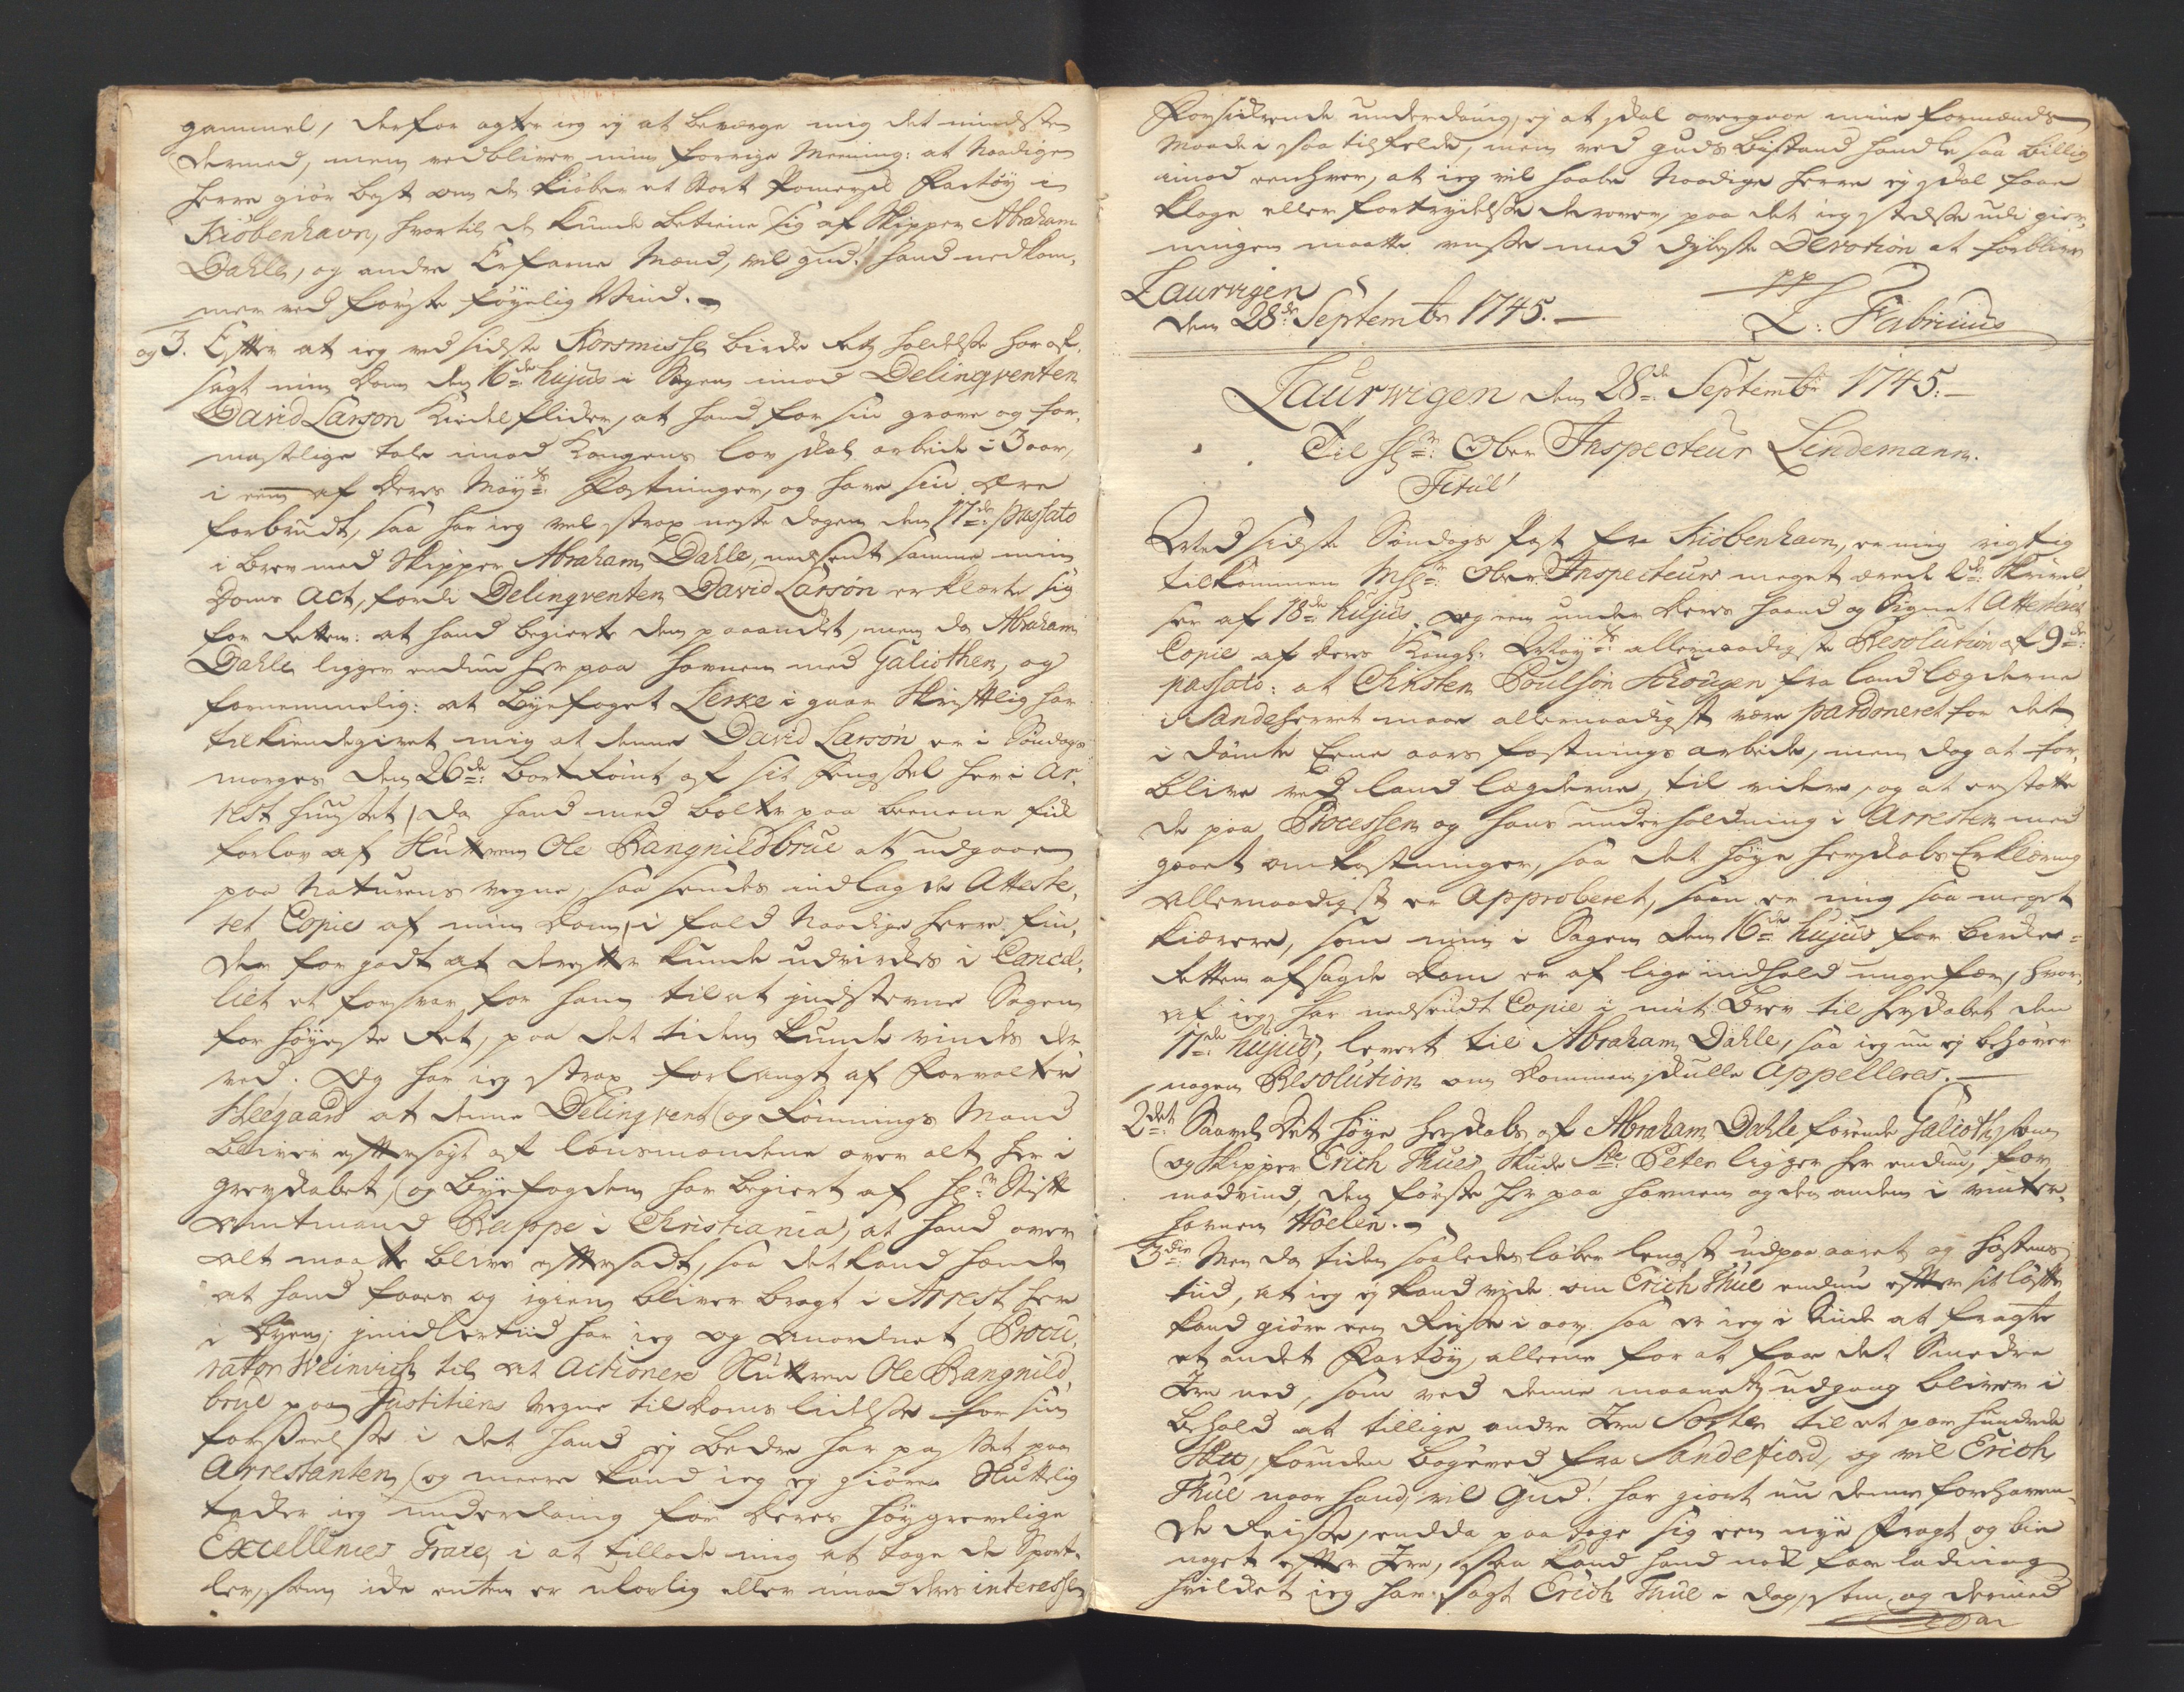 gammel, derfor agter ieg ej at bevæge mig det mindste
dermed, men vedbliver min forrige Meening: at Naadige
Herre giør best om de kiøber et Stort Pomersk Fartøy i
Kiøbenhavn, hvortil de kunde betiene sig af Skipper Abraham
Dahle, og andre Erfarne Mænd, vil gud! hand nedkom-
mer ved første føyelig Vind.
og 3. Efter at ieg ved sidste Korsmisse birke Retz holdelse har af-
sagt min dom den 16de hujus i Sagen imod Delinqventen
David Larson Kiedelflicker, at hand for sin grove og for-
mastelige tale imod Kongens lov skal arbeide i 3 aar,
i een af deres Mayts Fæstninger, og have sin Ære
forbrudt, saa har ieg vel strax neste dagen den 17de passato
i brev med Skipper Abraham Dahle, nedsent samme min
Doms Act, fordi Delinqventen David Larsøn erklærte sig
for Retten: at hand begierte den paaandket, men da Abraham
Dahle ligger endnu her paa havnen med Galiothen, og
fornemmelig: at Byefoget Lerke i gaar Skriftlig har
tilkiendegivet mig at denne David Larsøn er i Søndags
morges den 26de bortrømt af sit Fengsel her i Ar-
rest huuset, da hand med bolter paa beenene fik
forlov af Slutteren Ole Rangnildbrue at udgaae
paa Naturens vegne, saa sendes indlagde Atteste-
ret Copie af min dom, i fald Naadige Herre fin-
der for godt at derefter kunde udvirkes i Cancel-
liet et forsvar for ham til at indstevne Sagen
for høyeste Ret, paa det tiden kunde vindes der
ved. Og har ieg strax forlangt af Forvalter
Seegaard at denne Delinqvent og Rømnings Mand
bliver eftersøgt af lensmændene over alt her i
grevskabet, og Byefogden har begiert af Hr Stift
Amtmand Rappe i Christiania, at hand over
alt maatte blive eftersadt, saa det kand hænde
at hand faaes og igien bliver bragt i Arrest her
i Byen; imidlertiid har ieg og anordnet Procu-
rator Weinwich til at actionere Slutteren Ole Rangnild-
brue paa Justitiens vegne til doms lidelse for sin
forseelse i det hand ej bedre har passet paa
Arrestanten, og meere kand ieg ej giøre. Sluttelig
takker ieg underdanig for deres Høygrevelige
Excellences Grace, i at tillade mig at tage de Sport-
ler, som ide enten er ulovlig eller imod deres interesse,
Forsikrende underdanig, ej at skal overgaae mine formænds
Maade i saa tilfelde, men ved guds bistand handle saa billig
imod eenhver, at ieg vil haabe Naadige Herre ej skal faae
klage eller fortrydelse derover, paa det ieg stedse udi gier-
ningen maatte ansees med dybeste Devotion at forblive
Laurvigen pp
den 28de Septembr 1745. L: Fabricius
Laurwigen den 28de Septembr 1745.
Til Hr Ober Inspecteur Lindemann.
Titul!
Med sidste Søndags Post fra Kiøbenhavn, er mig rigtig
tilkommen MHr Ober Inspecteurs meget ærede Skrivel-
ser af 18de hujus, og een under deres haand og Signet Attesteret
Copie af deres Kongl: Mayts allernaadigste Resolution af 9de
passato: at Christen Poulsøn Krougen fra landlægderne
i Sandeherret maae allernaadigst være pardoneret for det
idømte Eene aars fæstnings arbeide, men dog at for-
blive ved landlægderne, til videre, og at erstatte
de paa Processen og hans underholdning i Arresten med
gaaet omkostninger, saa det høye herskabs Erklæring
allernaadigst er Approberet, saa er mig saa meget
kierere, som min i Sagen den 16de hujus for birke-
Retten afsagde dom er af lige indhold ungefær, hvor-
af ieg har nedsendt Copie i mit brev til herskabet den
17de hujus, levert til Abraham Dahle, saa ieg nu ej behøver
nogen Resolution om dommen skulle Appelleres.
2det Saavel det høye Herskabs af Abraham Dahle førende Galioth, som
og Skipper Erich Thues Skude Ste Peter ligger her endnu, for
modvind, den første her paa havnen og den anden i Winter-
havnen Hølen.
3die Men da tiden saaledes løber lengst udpaa aaret og høstens
tiid, at ieg ej kand vide om Erich Thue endnu efter sit løfte
kand giøre een Reyse i aar, saa er ieg i Sinde at fragte
et andet Fartøy, alleene for at faae det Smedde
Jern ned, som ved denne maanetz udgang bliver i
behold at tillige andre Jern Sorter til et par hundrede
Skd, foruden bøgeved fra Sandefiord, og vil Erich
Thue naar hand, vil Gud! har giort nu denne forehaven-
de Reise, endda paatage sig een nye Fragt og bie
noget efter Jern, saa kand hand nok faae ladning
hvilket ieg har sagt Erich Thue i dag, som og dermed
var